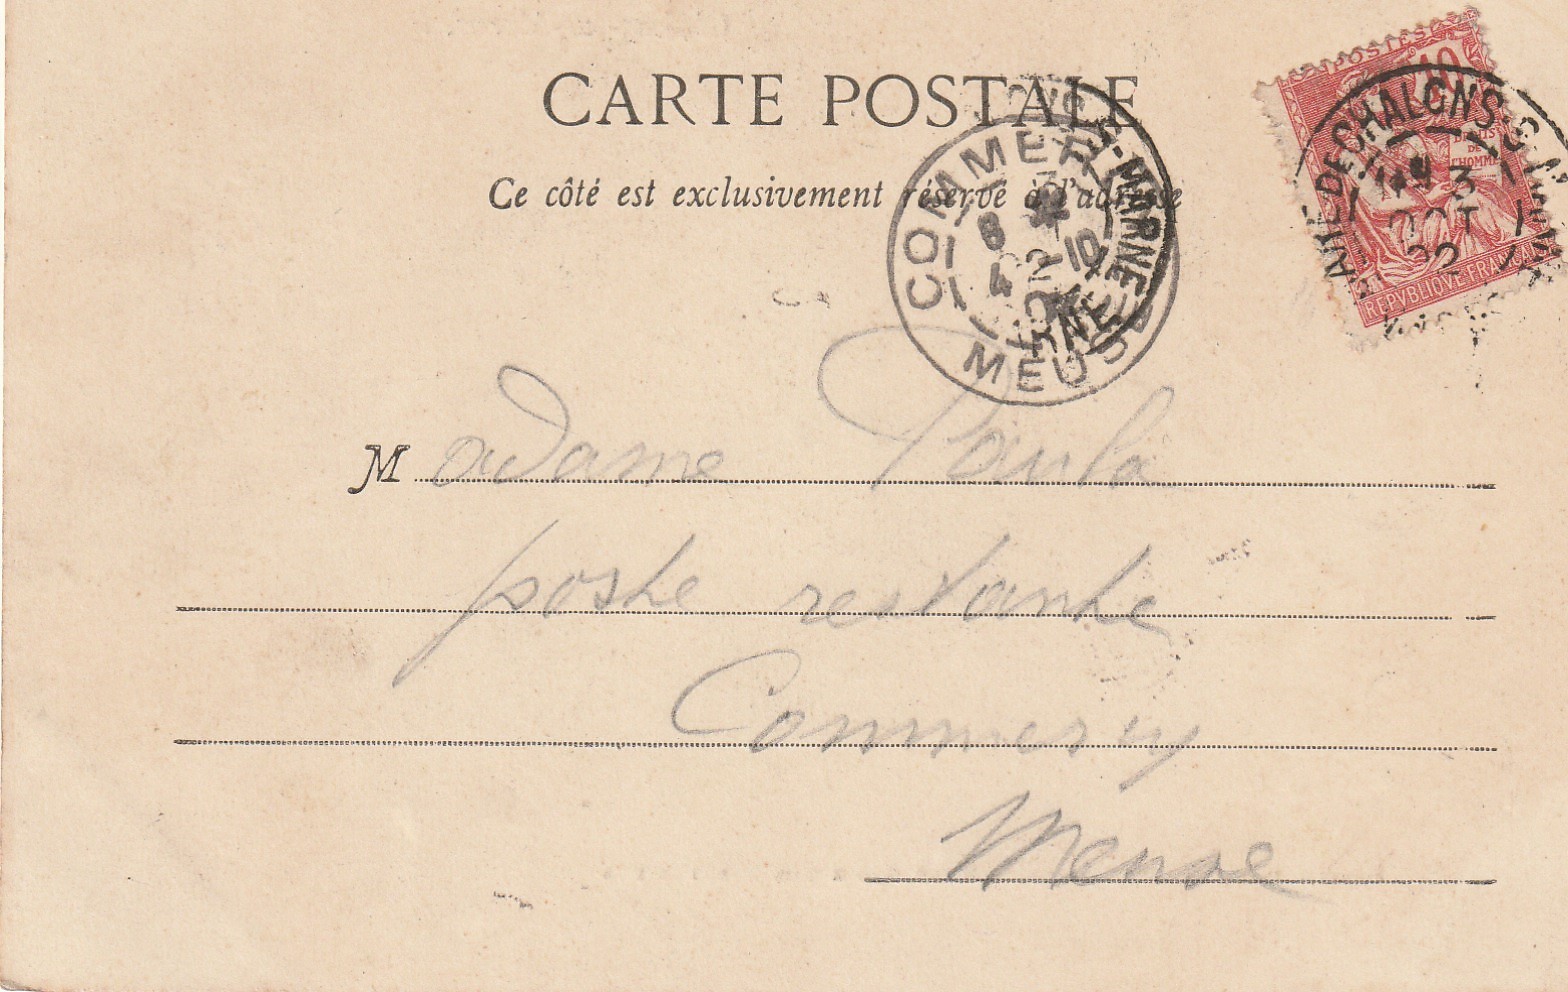 CARTE POSTALE
Ce côté est exclusivement réservé à l'adresse
POSTES
10
DROITS
DE
L'HOMME
REPVBLIQVE FRANÇAISE
DE CHALONS-S-M
3
OCT
02
COMMERCY
8
4 -10
02
MEUSE
-MARNE
Madame Paula
poste restante
Commercy
Meuse